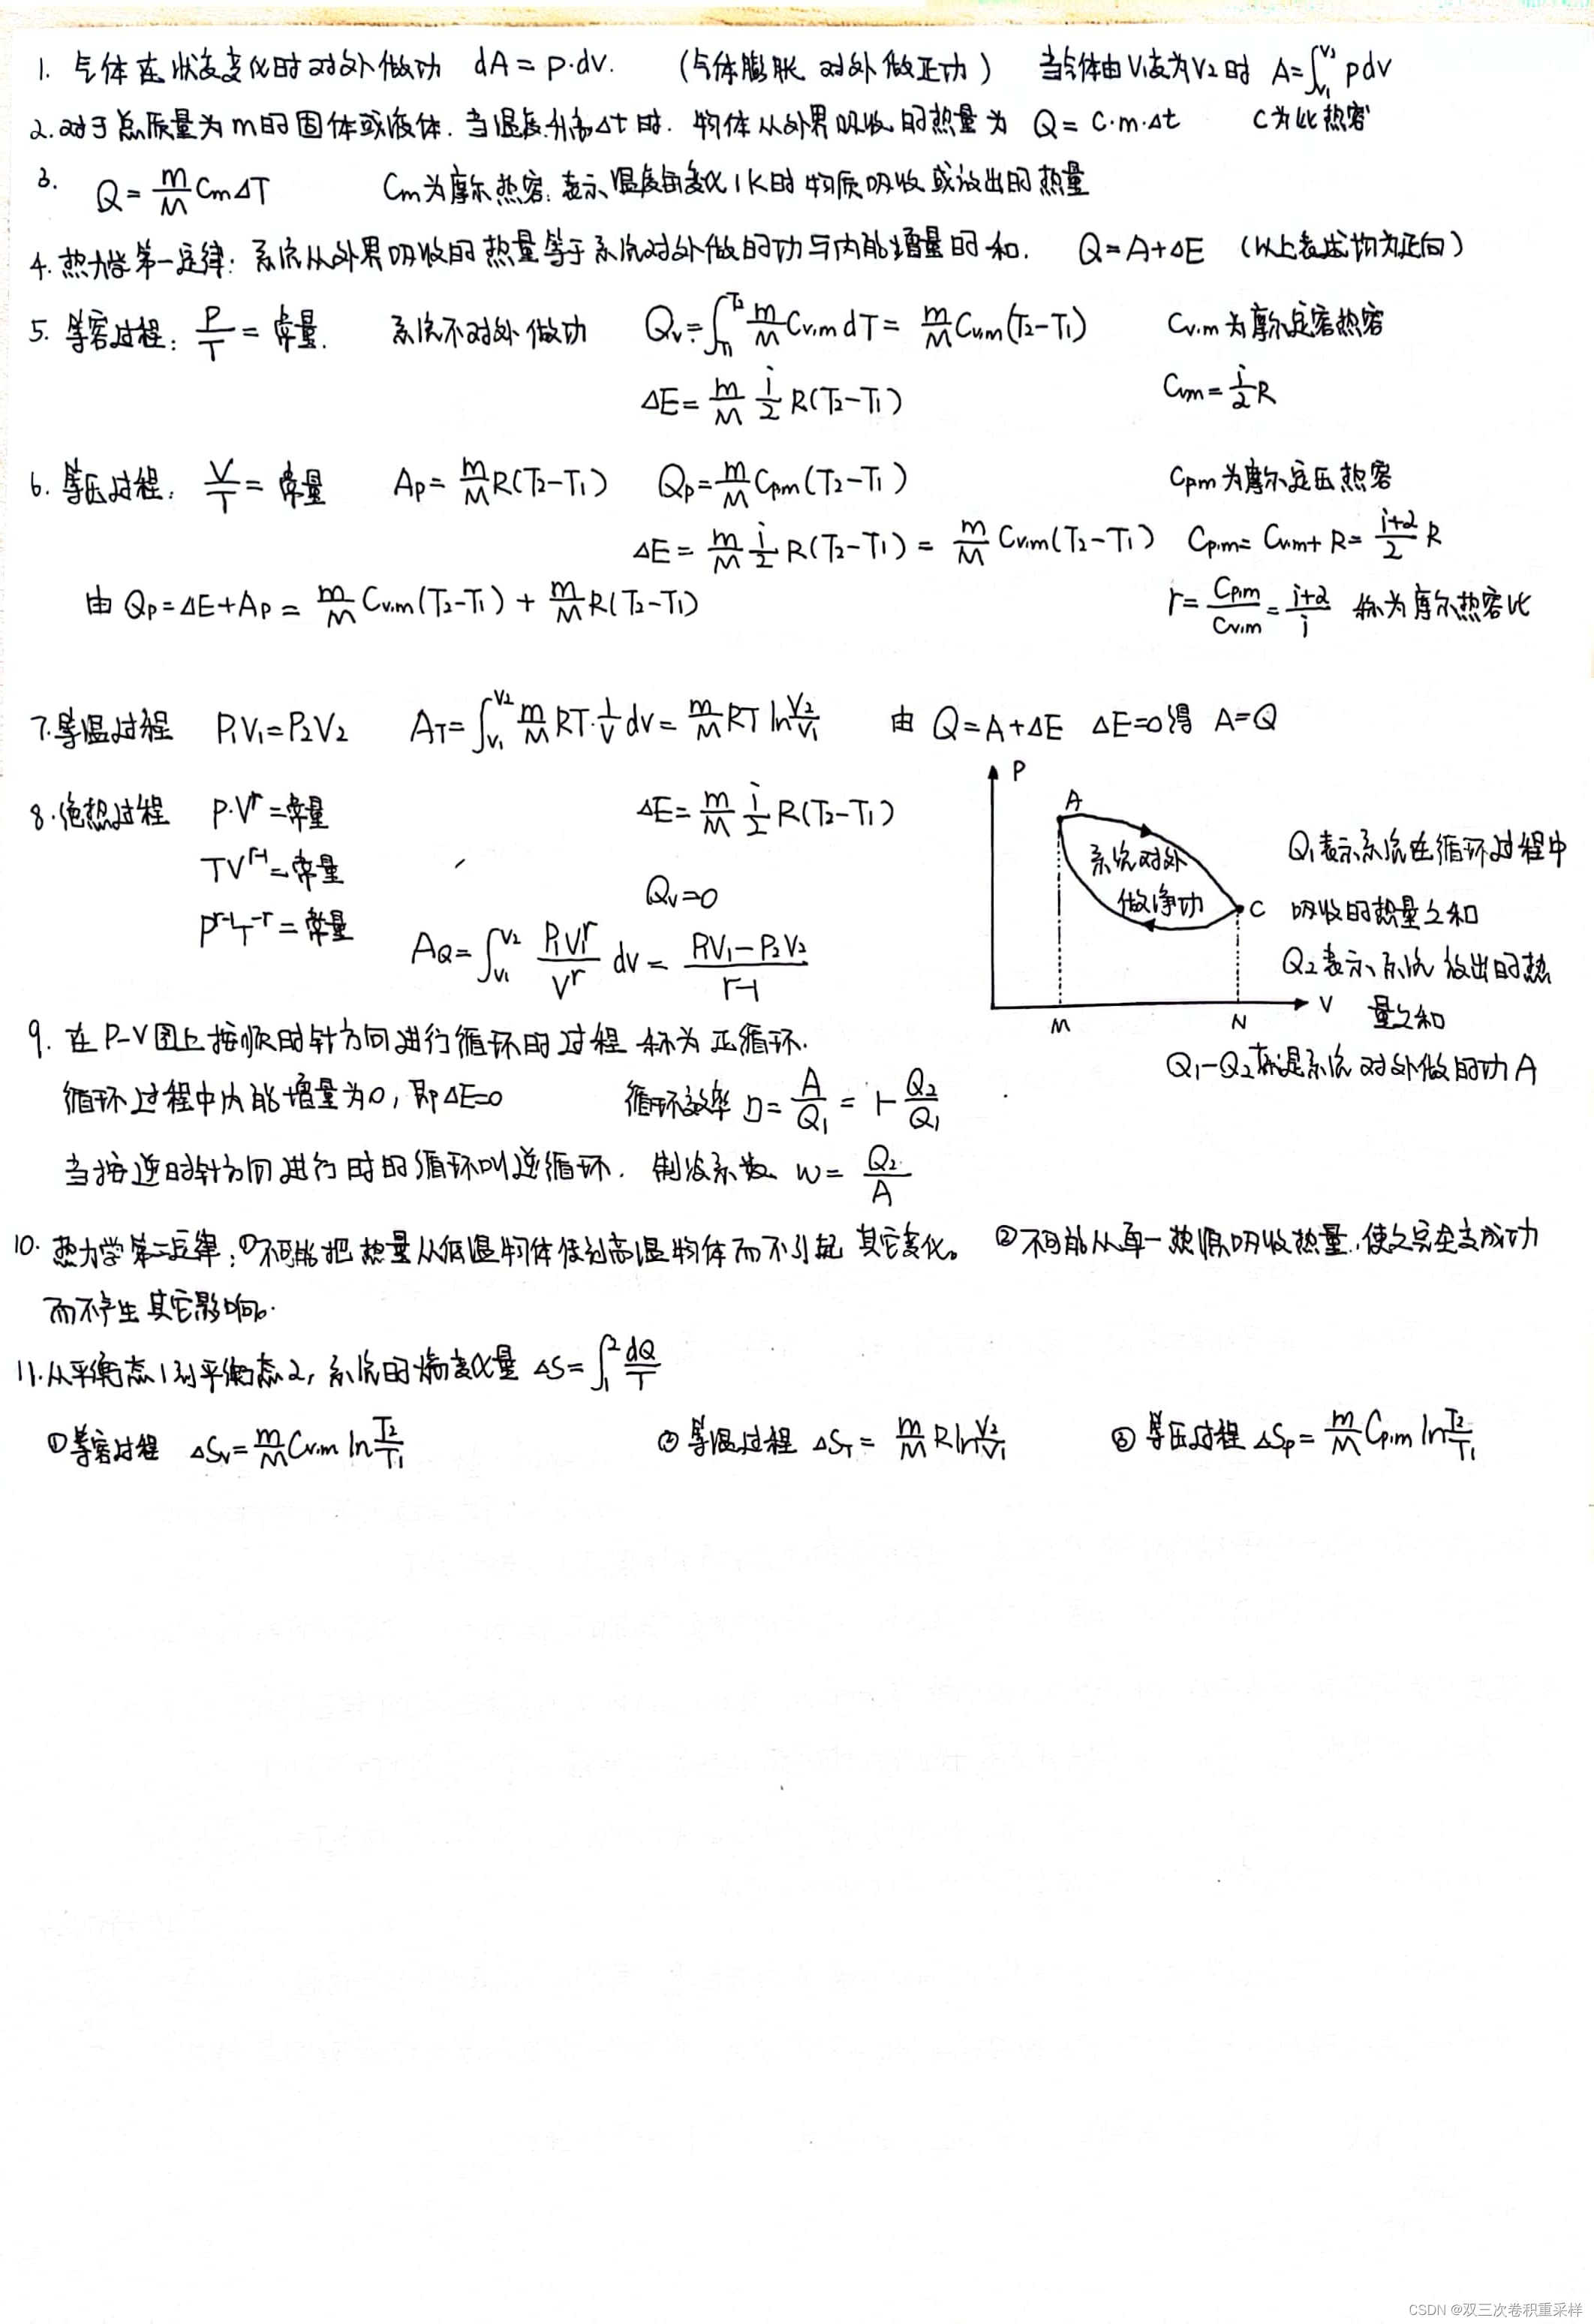 1. 气体在状态变化时对外做功 dA = p·dv. (气体膨胀 对外做正功) 当气体由V₁变为V₂时 A=∫_{V₁}^{V₂} pdv
2. 对于总质量为m的固体或液体. 当温度升高Δt时. 物体从外界吸收的热量为 Q = C·m·Δt C为比热容
3. Q = m/M Cm ΔT Cm为摩尔热容: 表示温度每变化1K时物质吸收或放出的热量
4. 热力学第一定律: 系统从外界吸收的热量等于系统对外做的功与内能增量的和. Q=A+ΔE (以上表述均为正向)
5. 等容过程: P/T = 常量. 系统不对外做功 Qv = ∫_{T₁}^{T₂} m/M Cv,m dT = m/M Cv,m (T₂-T₁) Cv,m为摩尔定容热容
ΔE = m/M i/2 R(T₂-T₁) Cvm = i/2 R
6. 等压过程: V/T = 常量 Ap = m/M R(T₂-T₁) Qp = m/M Cp,m (T₂-T₁) Cpm为摩尔定压热容
ΔE = m/M i/2 R(T₂-T₁) = m/M Cv,m(T₂-T₁) Cp,m = Cv,m + R = (i+2)/2 R
由 Qp=ΔE+Ap = m/M Cv,m(T₂-T₁) + m/M R(T₂-T₁) r = Cp,m/Cv,m = (i+2)/i 称为摩尔热容比
7. 等温过程 P₁V₁=P₂V₂ A_T = ∫_{V₁}^{V₂} m/M RT·1/V dv = m/M RT ln V₂/V₁ 由 Q=A+ΔE ΔE=0得 A=Q
8. 绝热过程 P·V^r = 常量 ΔE = m/M i/2 R(T₂-T₁)
TV^{r-1} = 常量
Qv=0
P^{r-1}T^{-r} = 常量
A_Q = ∫_{V₁}^{V₂} P₁V₁^r/V^r dv = (P₁V₁-P₂V₂)/(r-1)
P
A
系统对外
做净功
C
M
N
V
Q₁表示系统在循环过程中
吸收的热量之和
Q₂表示系统放出的热
量之和
Q₁-Q₂就是系统对外做的功A
9. 在P-V图上按顺时针方向进行循环的过程称为正循环.
循环过程中内能增量为0, 即ΔE=0 循环效率 η = A/Q₁ = 1-Q₂/Q₁
当按逆时针方向进行时的循环叫逆循环. 制冷系数 w = Q₂/A
10. 热力学第二定律: ①不可能把热量从低温物体传到高温物体而不引起其它变化。 ②不可能从单一热源吸收热量, 使之完全变成功
而不产生其它影响。
11. 从平衡态1到平衡态2, 系统的熵变化量 ΔS = ∫_1^2 dQ/T
①等容过程 ΔSv = m/M Cv,m ln T₂/T₁ ②等温过程 ΔS_T = m/M R ln V₂/V₁ ③等压过程 ΔSp = m/M Cp,m ln T₂/T₁
CSDN @双三次卷积重采样